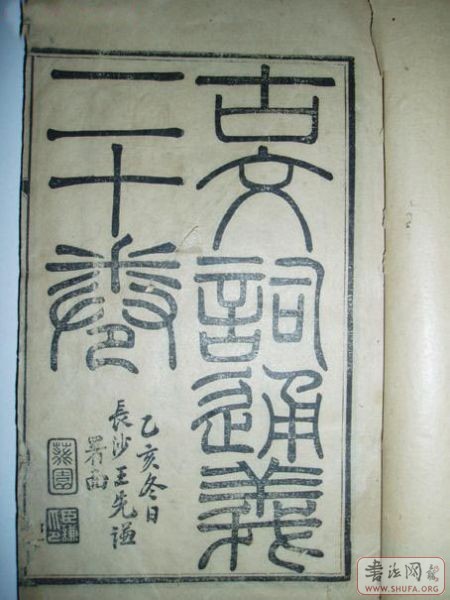 古文詞通義
二十卷
乙亥冬日
長沙王先謙
署
葵園
書法网報
WWW.SHUFA.ORG